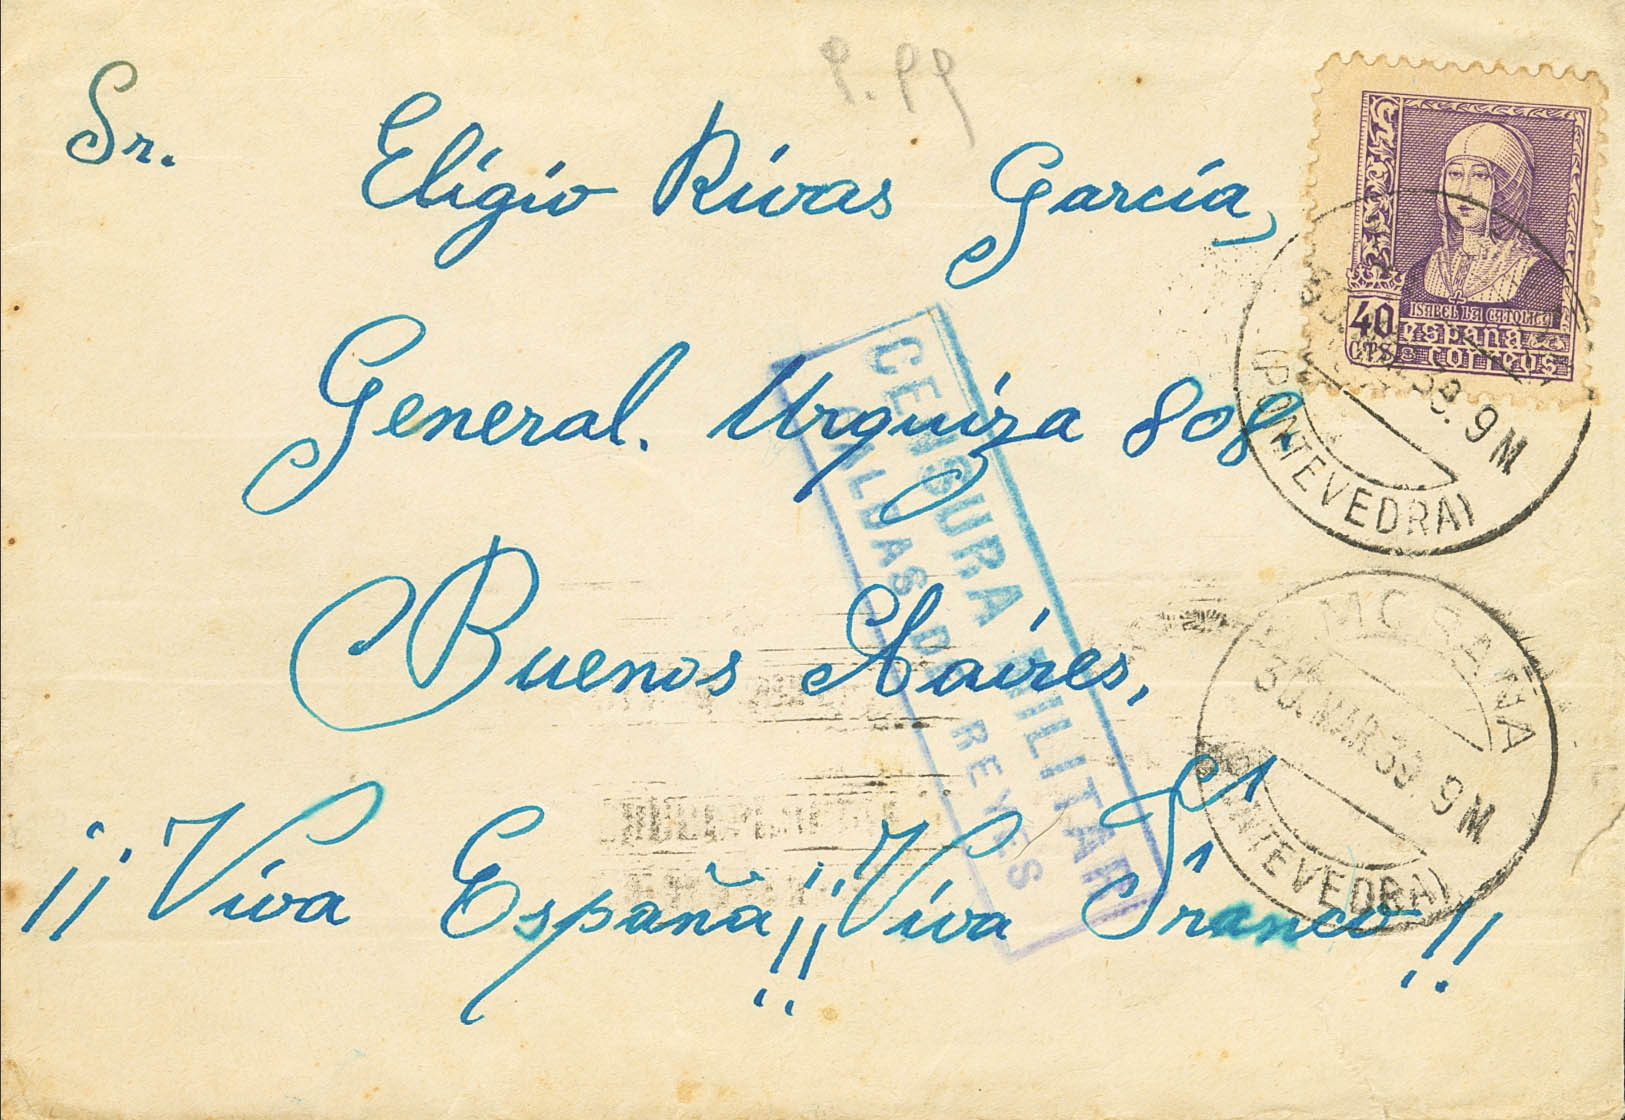 Sr. Eligio Rivas García,
General. Urquiza 808.
Buenos Aaires,
¡¡Viva España!! ¡¡Viva Franco!!
9.99
ISABEL LA CATOLICA
40 CTS
españa
correos
9M
(PONTEVEDRA)
CENSURA MILITAR
CALDAS DE REYES
MORAÑA
30.MAR.39.9M
(PONTEVEDRA)